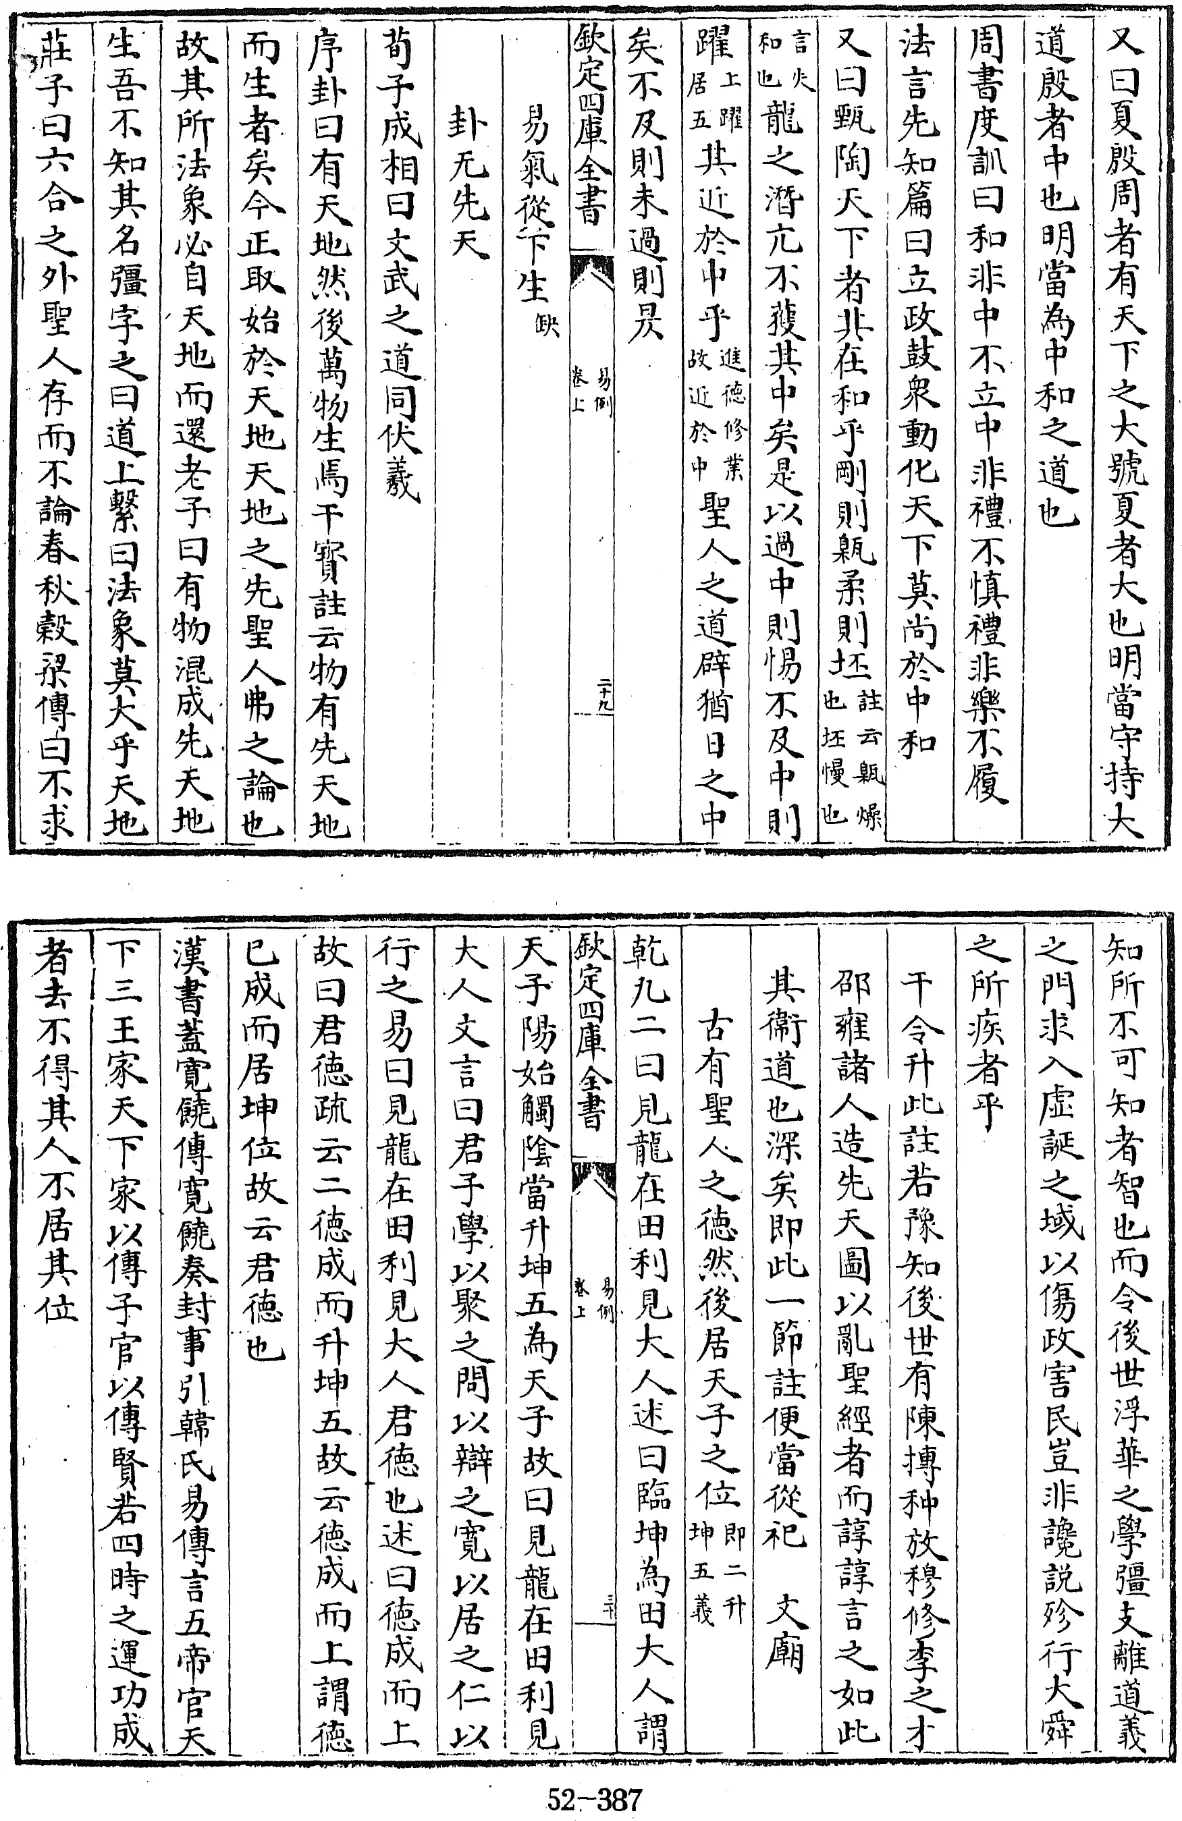 又曰夏殷周者有天下之大號夏者大也明當守持大
道殷者中也明當為中和之道也
周書度訓曰和非中不立中非禮不慎禮非樂不履
法言先知篇曰立政鼓衆動化天下莫尚於中和
又曰甄陶天下者其在和乎剛則甈柔則坯註云甈燥也坯慢也
言失和也龍之潛亢不獲其中矣是以過中則惕不及中則
躍上躍居五其近於中乎進德修業故近於中聖人之道辟猶日之中
矣不及則未過則昃
欽定四庫全書 易例卷上 二十九
易氣從下生缺
卦无先天
荀子成相曰文武之道同伏羲
序卦曰有天地然後萬物生焉干寶註云物有先天地
而生者矣今正取始於天地天地之先聖人弗之論也
故其所法象必自天地而還老子曰有物混成先天地
生吾不知其名彊字之曰道上繫曰法象莫大乎天地
莊子曰六合之外聖人存而不論春秋穀梁傳曰不求
知所不可知者智也而令後世浮華之學彊支離道義
之門求入虛誕之域以傷政害民豈非讒說殄行大舜
之所疾者乎
干令升此註若豫知後世有陳摶种放穆修李之才
邵雍諸人造先天圖以亂聖經者而諄諄言之如此
其衛道也深矣即此一節註便當從祀 文廟
古有聖人之德然後居天子之位即二升坤五義
乾九二曰見龍在田利見大人述曰臨坤為田大人謂
欽定四庫全書 易例卷上 三十
天子陽始觸陰當升坤五為天子故曰見龍在田利見
大人文言曰君子學以聚之問以辯之寬以居之仁以
行之易曰見龍在田利見大人君德也述曰德成而上
故曰君德疏云二德成而升坤五故云德成而上謂德
已成而居坤位故云君德也
漢書蓋寬饒傳寬饒奏封事引韓氏易傳言五帝官天
下三王家天下家以傳子官以傳賢若四時之運功成
者去不得其人不居其位
52-387